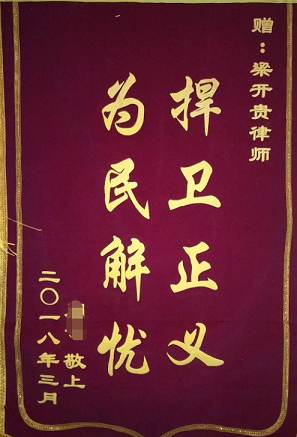 赠：梁开贵律师
捍卫正义
为民解忧
敬上
二〇一八年三月